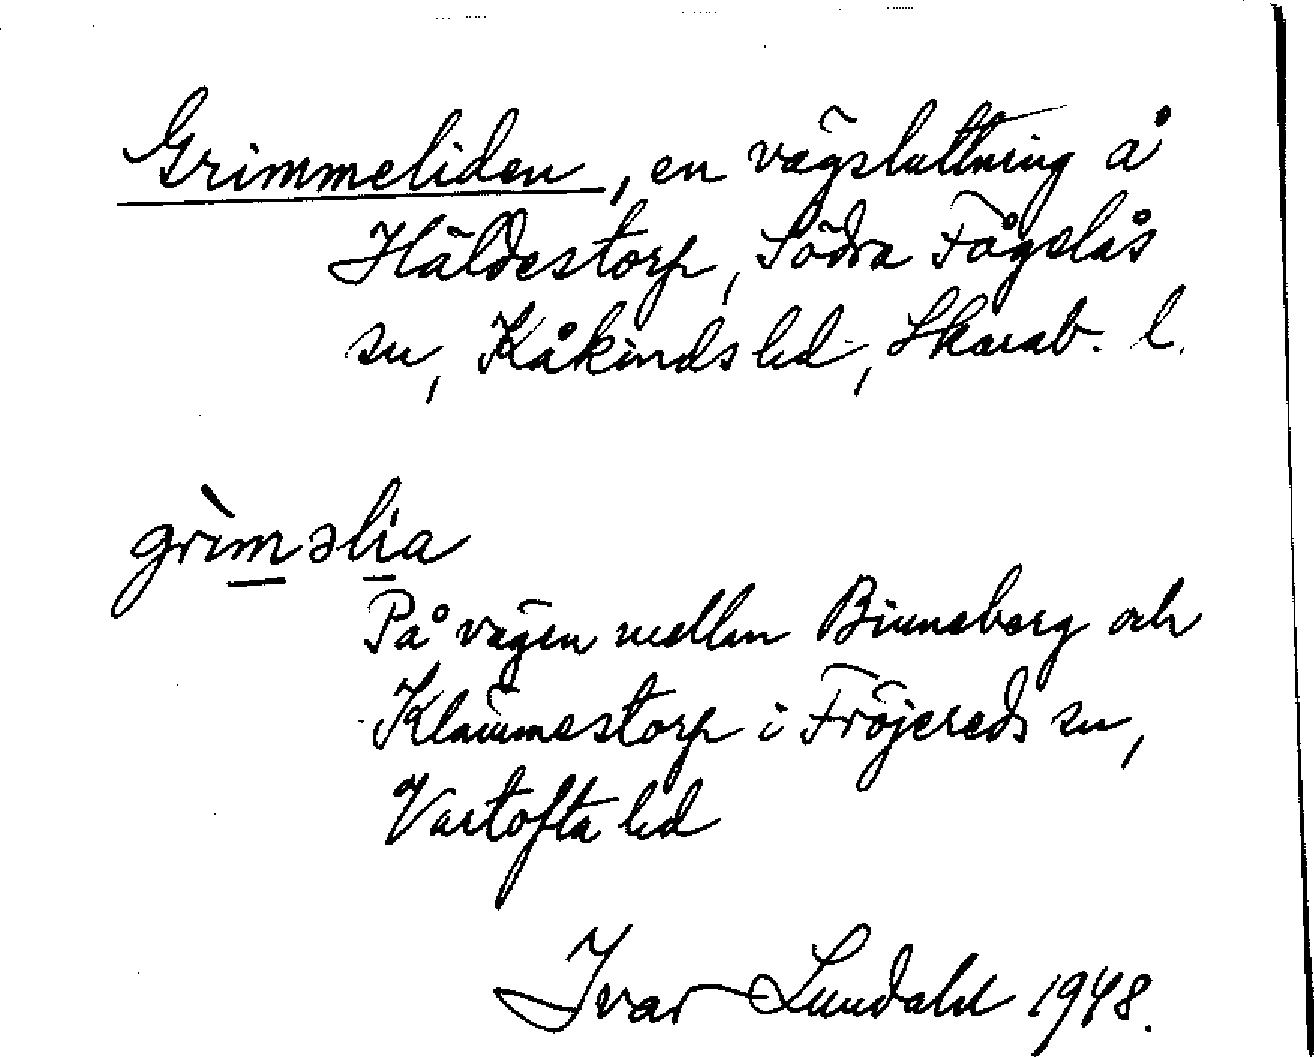 Grimmeliden, en vägsluttning å
Häldestorp, Södra Fågelås
sn, Kåkinds hd, Skarab. l.
grìməlia
På vägen mellan Binneberg och
Klämmestorp i Fröjereds sn,
Vartofta hd
Ivar Lundahl 1948.